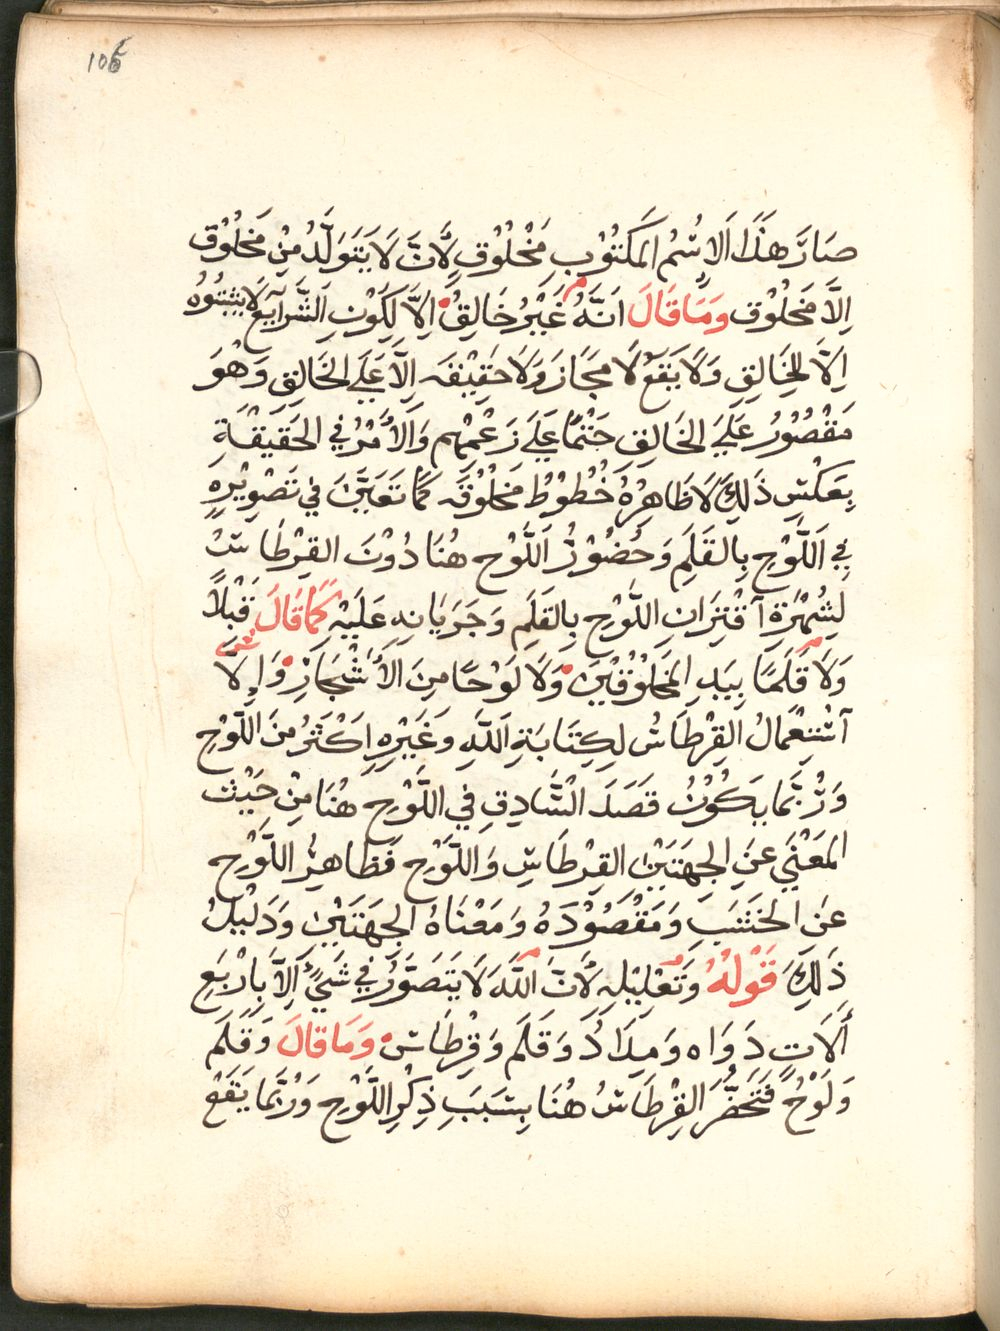 105
صَارَ هٰذَا اَلاِسْمُ المَكتُوْبِ مَخْلُوْقٍ لِأَنَّ لَا يَتَوَلَّدُ مِنْ مَخلُوْق
اِلَّا مَخْلُوْق وَمَا قَالَ اَنَّهُ غَيْرُ خَالِقُ اِلَّا لِكَوْنِ الشَّرَآيِع لَا يثبتُوهُ
اِلَّا لِلخَالِقِ وَلَا يَقَعْ لَا مَجَاز وَلَا حَقِيْقَه اِلَّا عَلَى الخَالِقِ وَهْوَ
مَقْصُوْرُ عَلَىَ الخَالِقِ حَتْمًا عَلَى زَعْمِهِم وَالأَمْرُ فِي الحَقِيْقَةِ
بِعَكْسِ ذَلِكَ لَا ظَاهِرُهُ خُطُوْطُ مَخلُوْقَه كَمَا تَعَيَّنَ فِي تَصْوِيْرِهِ
فِي اَللَّوْحِ بِالقَلَمِ وَحُضُوْرُ اَللَّوْحِ هُنَا دُوْنَ القِرْطَاسُ
لِشُهْرَةِ آقْتِرَانِ اللَّوْحِ بِالقَلَمِ وَجَرَيَانِهِ عَلَيْهِ كَمَا قَالَ قَبْلًا
وَلَا قَلَمًا بِيَدِ المَخلُوْقِيْنَ وَلَا لَوْحًا مِنَ الأَشْجَارِ وَاِلَّا
آسْتِعْمَالُ القِرْطَاسُ لِكِتَابَةِ اَللَّهِ وَغَيْرِهِ اِكثَرُ مِنَ اللَّوْحِ
وَرُبَّمَا يَكُوْنُ قَصَدَ السَّادِقِ فِي اللَّوْحِ هُنَا مِنْ حَيْث
المَعْنَي عَنِ الجِهَتَيْنِ القِرْطَاسِ وَاللَّوْحِ فَظَاهِرُ اللَّوْحِ
عَنِ الخَشَبَ وَمَقْصُوْدَهُ وَمَعْنَاهُ الجِهَتَيْنِ وَدَلِيْلُ
ذَلِكَ قَوْلُهُ وَتَعْلِيْلِهِ لِأَنَّ اَللَّهَ لَا يَتَصَوَّرُ فِي شَيءٍ اِلَّا بِاِرْبَعِ
أَلَاتٍ دَوَاه وَمِدَادُ وَقَلَم وَقِرْطَاس وَمَا قَالَ وَقَلَم
وَلَوْحُ فَتَحَضَّرَ القِرْطَاسُ هُنَا بِسَبَبِ ذِكْرِ اللَّوْحِ وَرُبَّمَا يَقَعْ